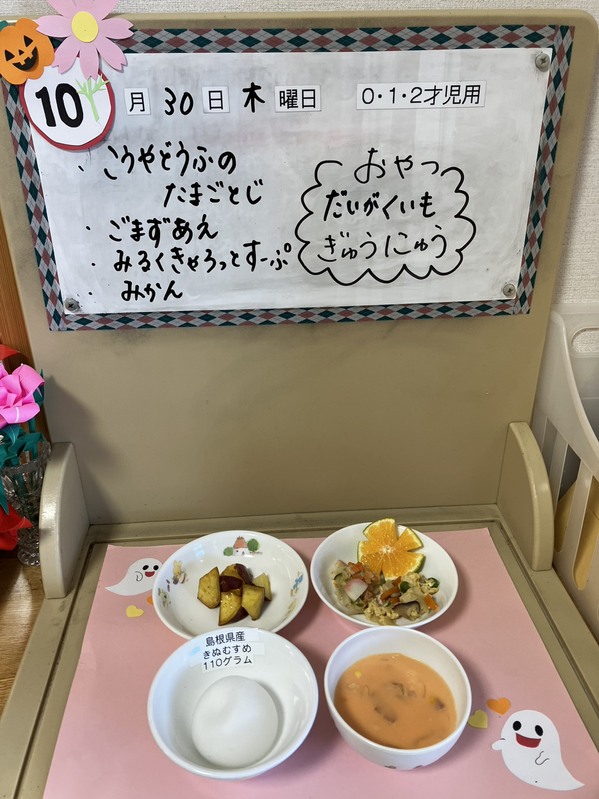 10月30日木曜日 0・1・2才児用
・こうやどうふの
たまごとじ
・ごまずあえ
・みるくきゃろっとすーぷ
・みかん
おやつ
だいがくいも
ぎゅうにゅう
島根県産
きぬむすめ
110グラム